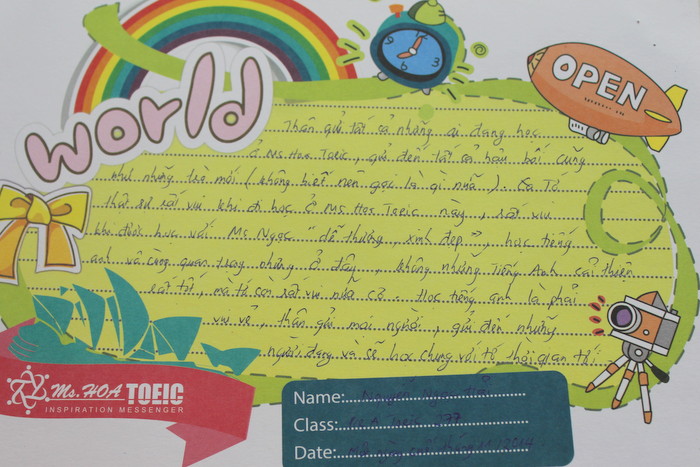 world
OPEN
Thân gửi tất cả những ai đang học
ở Ms Hoa Toeic, gửi đến tất cả hậu bối cũng
như những lứa mới (không biết nên gọi là gì nữa). Là Tớ
thật sự rất vui khi đi học ở Ms Hoa Toeic này, rất vui
khi được học với Ms Ngọc "dễ thương, xinh đẹp", học tiếng
anh vô cùng quan trọng nhưng ở đây, không những Tiếng Anh cải thiện
rất tốt, mà tớ còn rất vui nữa cơ. Học tiếng anh là phải
vui vẻ, thân gửi mọi người, gửi đến những
người đang và sẽ học chung với tớ, thời gian tới.
Ms. HOA TOEIC
INSPIRATION MESSENGER
Name: Nguyễn
Class:
Date: tháng 11/2014